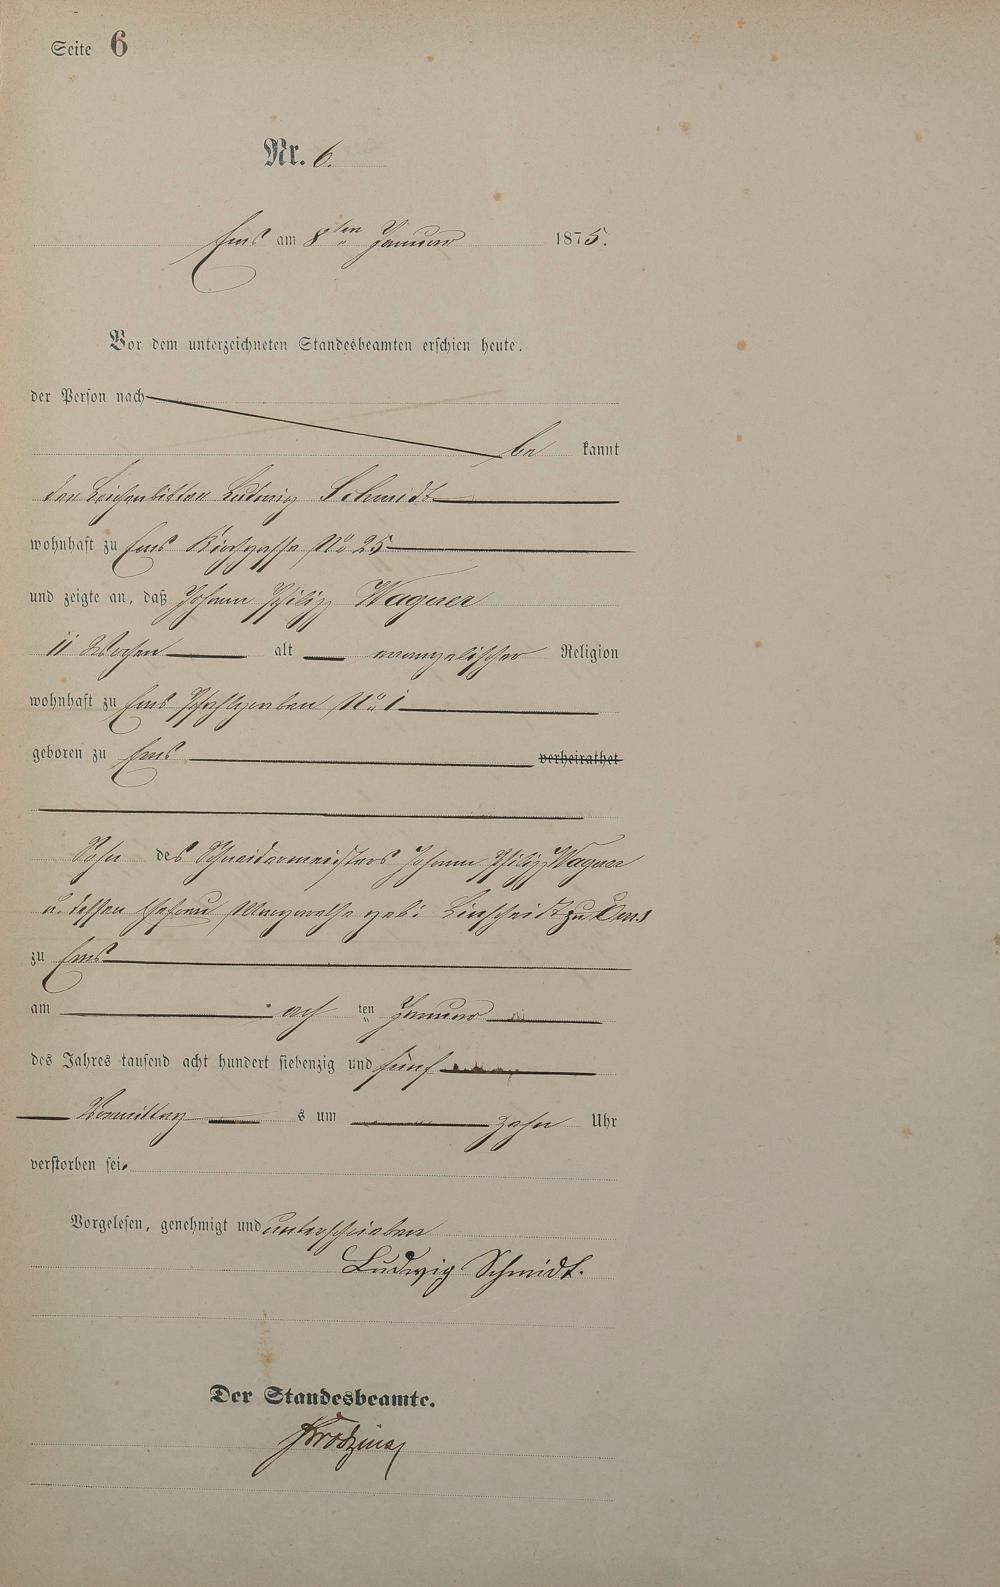 Seite 6
Nr. 6.
Ems am 8ten Januar 1875.
Vor dem unterzeichneten Standesbeamten erschien heute,
der Person nach
be kannt
der Leichenbitter Ludwig Schmidt
wohnhaft zu Ems Kirchgasse No 25
und zeigte an, daß Johann Philipp Wagner
11 Wochen alt evangelischer Religion
wohnhaft zu Ems Pfahlgraben No 1
geboren zu Ems verheirathet
Sohn des Schneidermeisters Johann Philipp Wagner
u. dessen Ehefrau Margarethe geb. Linscheidt zu Ems
zu Ems
am ach ten Januar
des Jahres tausend acht hundert siebenzig und fünf
Vormittag s um zehn Uhr
verstorben sei.
Vorgelesen, genehmigt und unterschrieben
Ludwig Schmidt.
Der Standesbeamte.